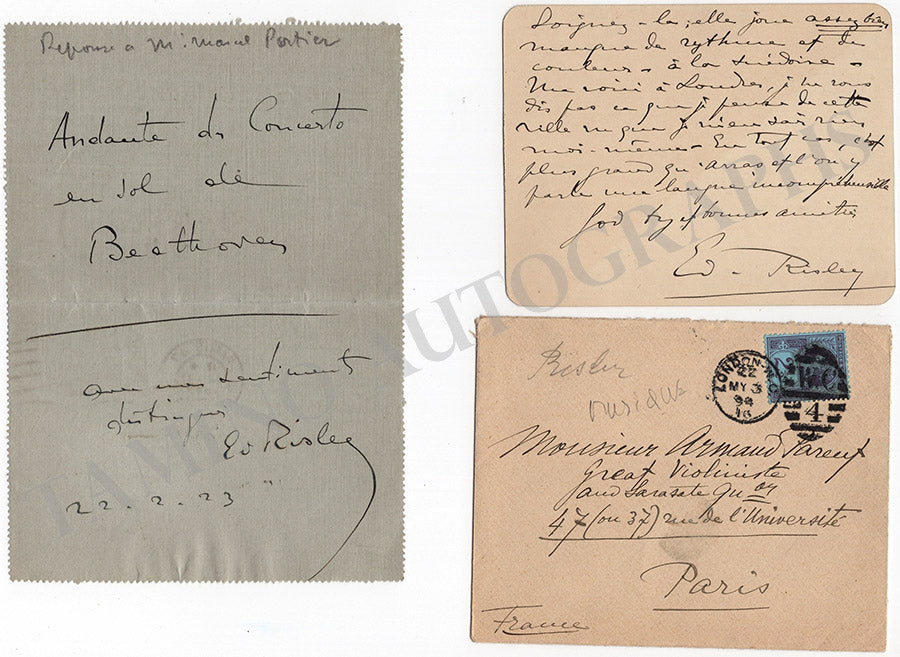 Reponse a Mr. Marcel Portier
Andante du Concerto
en sol de
Beethoven
avec mes sentiments
distingués
Ed Risler
22. 2. 23
Soignez-la ; elle joue assez bien,
manque de rythme et de
couleur - à la suédoise -
Me voici à Londres, je ne vous
dis pas ce que je pense de cette
ville vu que je n'en sais rien
moi-même. En tout cas, c'est
plus grand qu'Arras et l'on y
parle une langue incompréhensible
bonnes amitiés
Ed. Risler
Risler
musique
LONDON W.C
22
MY 3
94
16
W.C
4
Monsieur Armand Parent
Great Violiniste
and Sarasate Quor
47 (ou 37) rue de l'Université
Paris
France
TAMINO AUTOGRAPHS